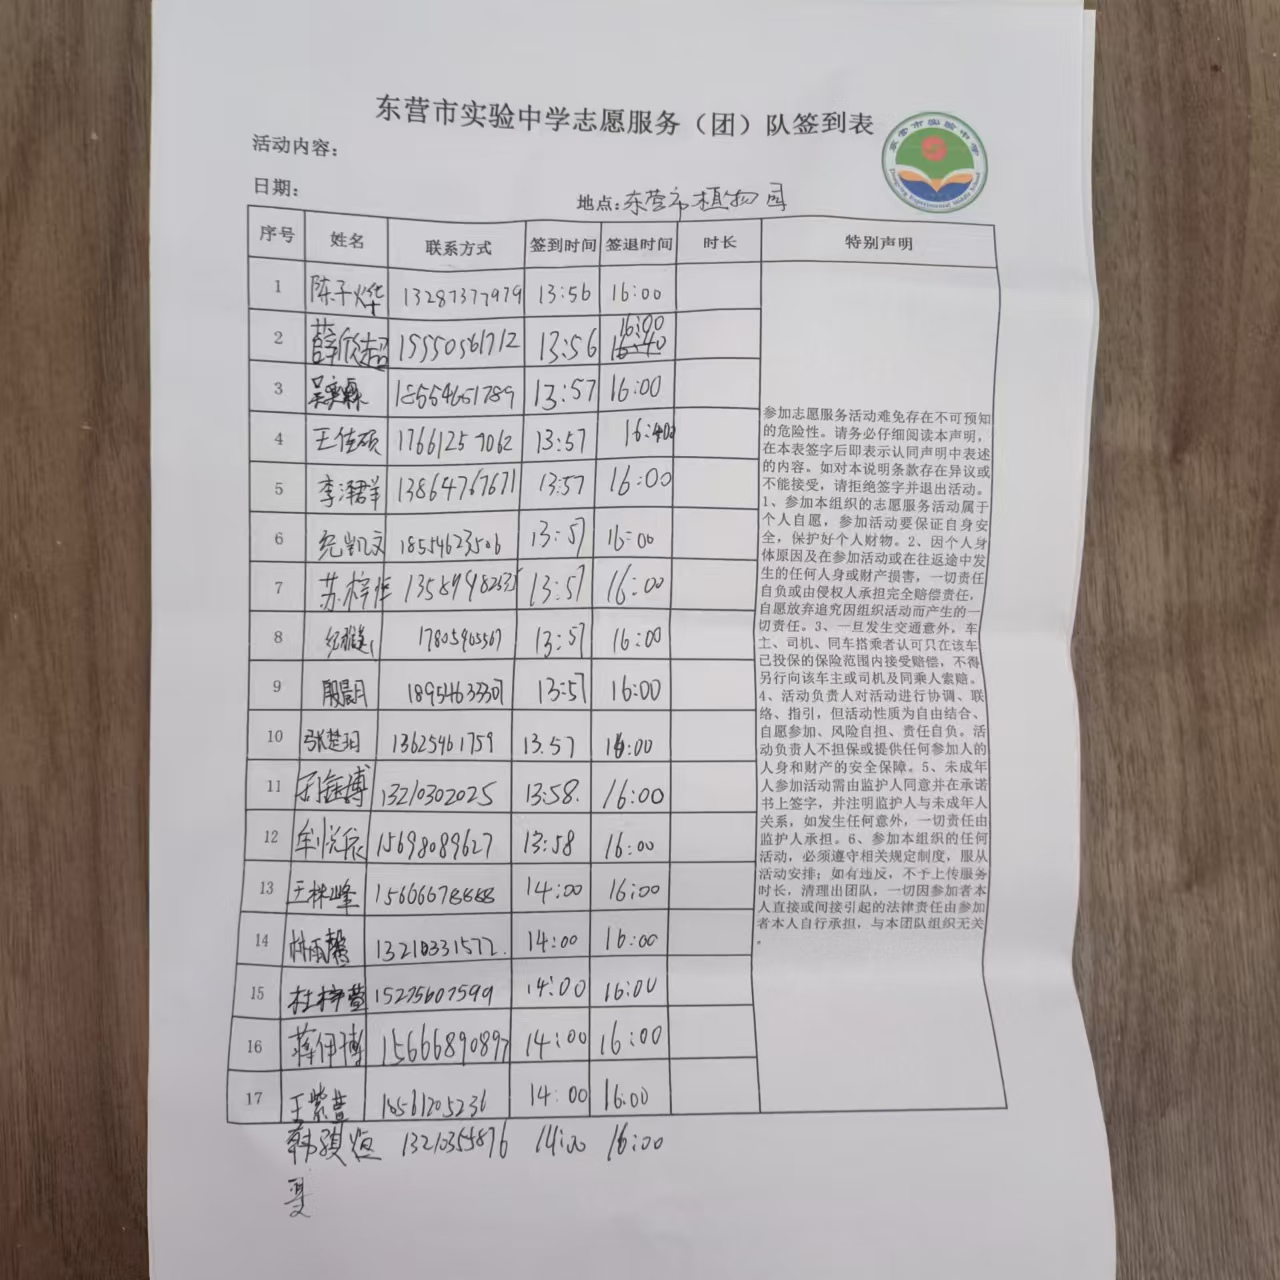 东营市实验中学志愿服务（团）队签到表
活动内容：
日期：
地点：东营市植物园
序号 姓名 联系方式 签到时间 签退时间 时长 特别声明
1 陈子烨 13287377979 13:56 16:00
2 薛欣超 15550561712 13:56 16:00
3 18554651789 13:57 16:00
4 王佳硕 17661257062 13:57
5 李泽群 13864767671 13:57 16:00
6 纪凯文 18554623506 13:57 16:00
7 苏梓 13:57 16:00
8 17805465567 13:57 16:00
9 殷晨月 13:57 16:00
10 张楚玥 13625461759 13:57 16:00
11 13210302025 13:58. 16:00
12 牟悦辰 15698089627 13:58 16:00
13 王林峰 14:00 16:00
14 林雨馨 14:00 16:00
15 杜梓萱 15275607599 14:00 16:00
16 蒋伊博 15666890897 14:00 16:00
17 王紫萱 18561205236 14:00 16:00
13210355876 14:00 16:00
夏
参加志愿服务活动难免存在不可预知
的危险性。请务必仔细阅读本声明，
在本表签字后即表示认同声明中表述
的内容。如对本说明条款存在异议或
不能接受，请拒绝签字并退出活动。
1、参加本组织的志愿服务活动属于
个人自愿，参加活动要保证自身安
全，保护好个人财物。2、因个人身
体原因及在参加活动或在往返途中发
生的任何人身或财产损害，一切责任
自负或由侵权人承担完全赔偿责任，
自愿放弃追究因组织活动而产生的一
切责任。3、一旦发生交通意外，车
主、司机、同车搭乘者认可只在该车
已投保的保险范围内接受赔偿，不得
另行向该车主或司机及同乘人索赔。
4、活动负责人对活动进行协调、联
络、指引，但活动性质为自由结合、
自愿参加、风险自担、责任自负。活
动负责人不担保或提供任何参加人的
人身和财产的安全保障。5、未成年
人参加活动需由监护人同意并在承诺
书上签字，并注明监护人与未成年人
关系，如发生任何意外，一切责任由
监护人承担。6、参加本组织的任何
活动，必须遵守相关规定制度，服从
活动安排；如有违反，不予上传服务
时长，清理出团队，一切因参加者本
人直接或间接引起的法律责任由参加
者本人自行承担，与本团队组织无关
。
东营市实验中学
Dongying Experimental Middle School